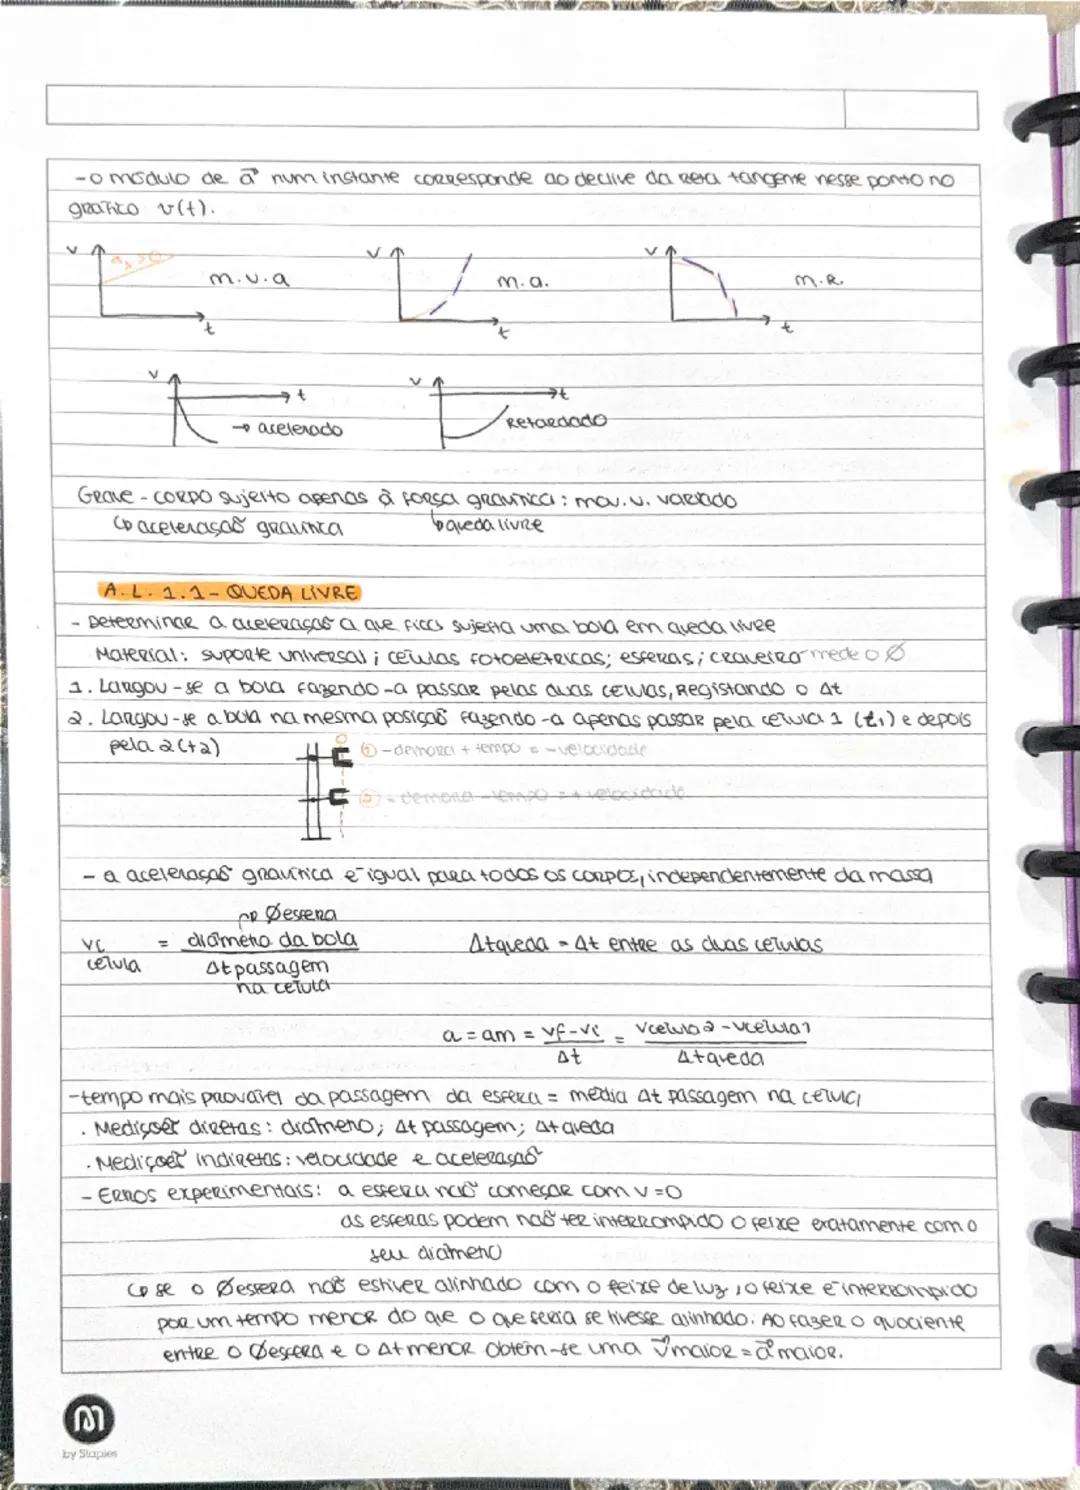 - o módulo de a⃗ num instante corresponde ao declive da reta tangente nesse ponto no
gráfico v(t).
v aₓ>0 t m.u.a
v t m.a.
v t m.R.
v t → acelerado
v t Retardado
Grave - corpo sujeito apenas à força gravítica: mov. u. variado
↳ aceleração gravítica ↳ queda livre
A.L. 1.1 - QUEDA LIVRE
- Determinar a aceleração a que fica sujeita uma bola em queda livre
Material: suporte universal; células fotoelétricas; esferas; craveira mede o Ø
1. Largou-se a bola fazendo-a passar pelas duas células, Registando o Δt
2. Largou-se a bola na mesma posição fazendo-a apenas passar pela célula 1 (t₁) e depois
pela 2 (t2)
① - demora + tempo = - velocidade
② - demora - tempo = + velocidade
- a aceleração gravítica é igual para todos os corpos, independentemente da massa
↱ Øesfera
v célula = diâmetro da bola / Δt passagem na célula
Δtqueda = Δt entre as duas células
a = am = vf-vi / Δt = vcélula2 - vcélula1 / Δtqueda
- tempo mais provável da passagem da esfera = média Δt passagem na célula
. Medições diretas: diâmetro; Δt passagem; Δt queda
. Medições indiretas: velocidade e aceleração
- Erros experimentais: a esfera não começar com v=0
as esferas podem não ter interrompido o feixe exatamente com o
seu diâmetro
↳ se o Øesfera não estiver alinhado com o feixe de luz, o feixe é interrompido
por um tempo menor do que o que seria se tivesse alinhado. Ao fazer o quociente
entre o Øesfera e o Δt menor obtém-se uma v⃗ maior = a⃗ maior.
by Staples